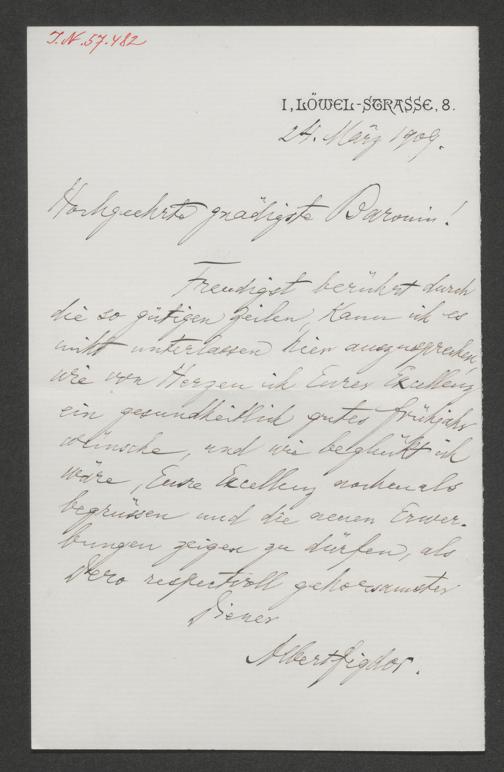 I.N. 57.482
I, LÖWEL-STRASSE, 8.
24. März 1909.
Hochgeehrte gnädigste Baronin!
Freudigst berührt durch
die so gütigen Zeilen, kann ich es
nicht unterlassen hier auszusprechen,
wie von Herzen ich Eurer Excellenz
ein gesundheitlich gutes Frühjahr
wünsche, und wie beglückt ich
wäre, Eure Excellenz nochmals
begrüssen und die neuen Erwer-
bungen zeigen zu dürfen, als
Dero respectvoll gehorsamster
Diener
Albert Figdor.